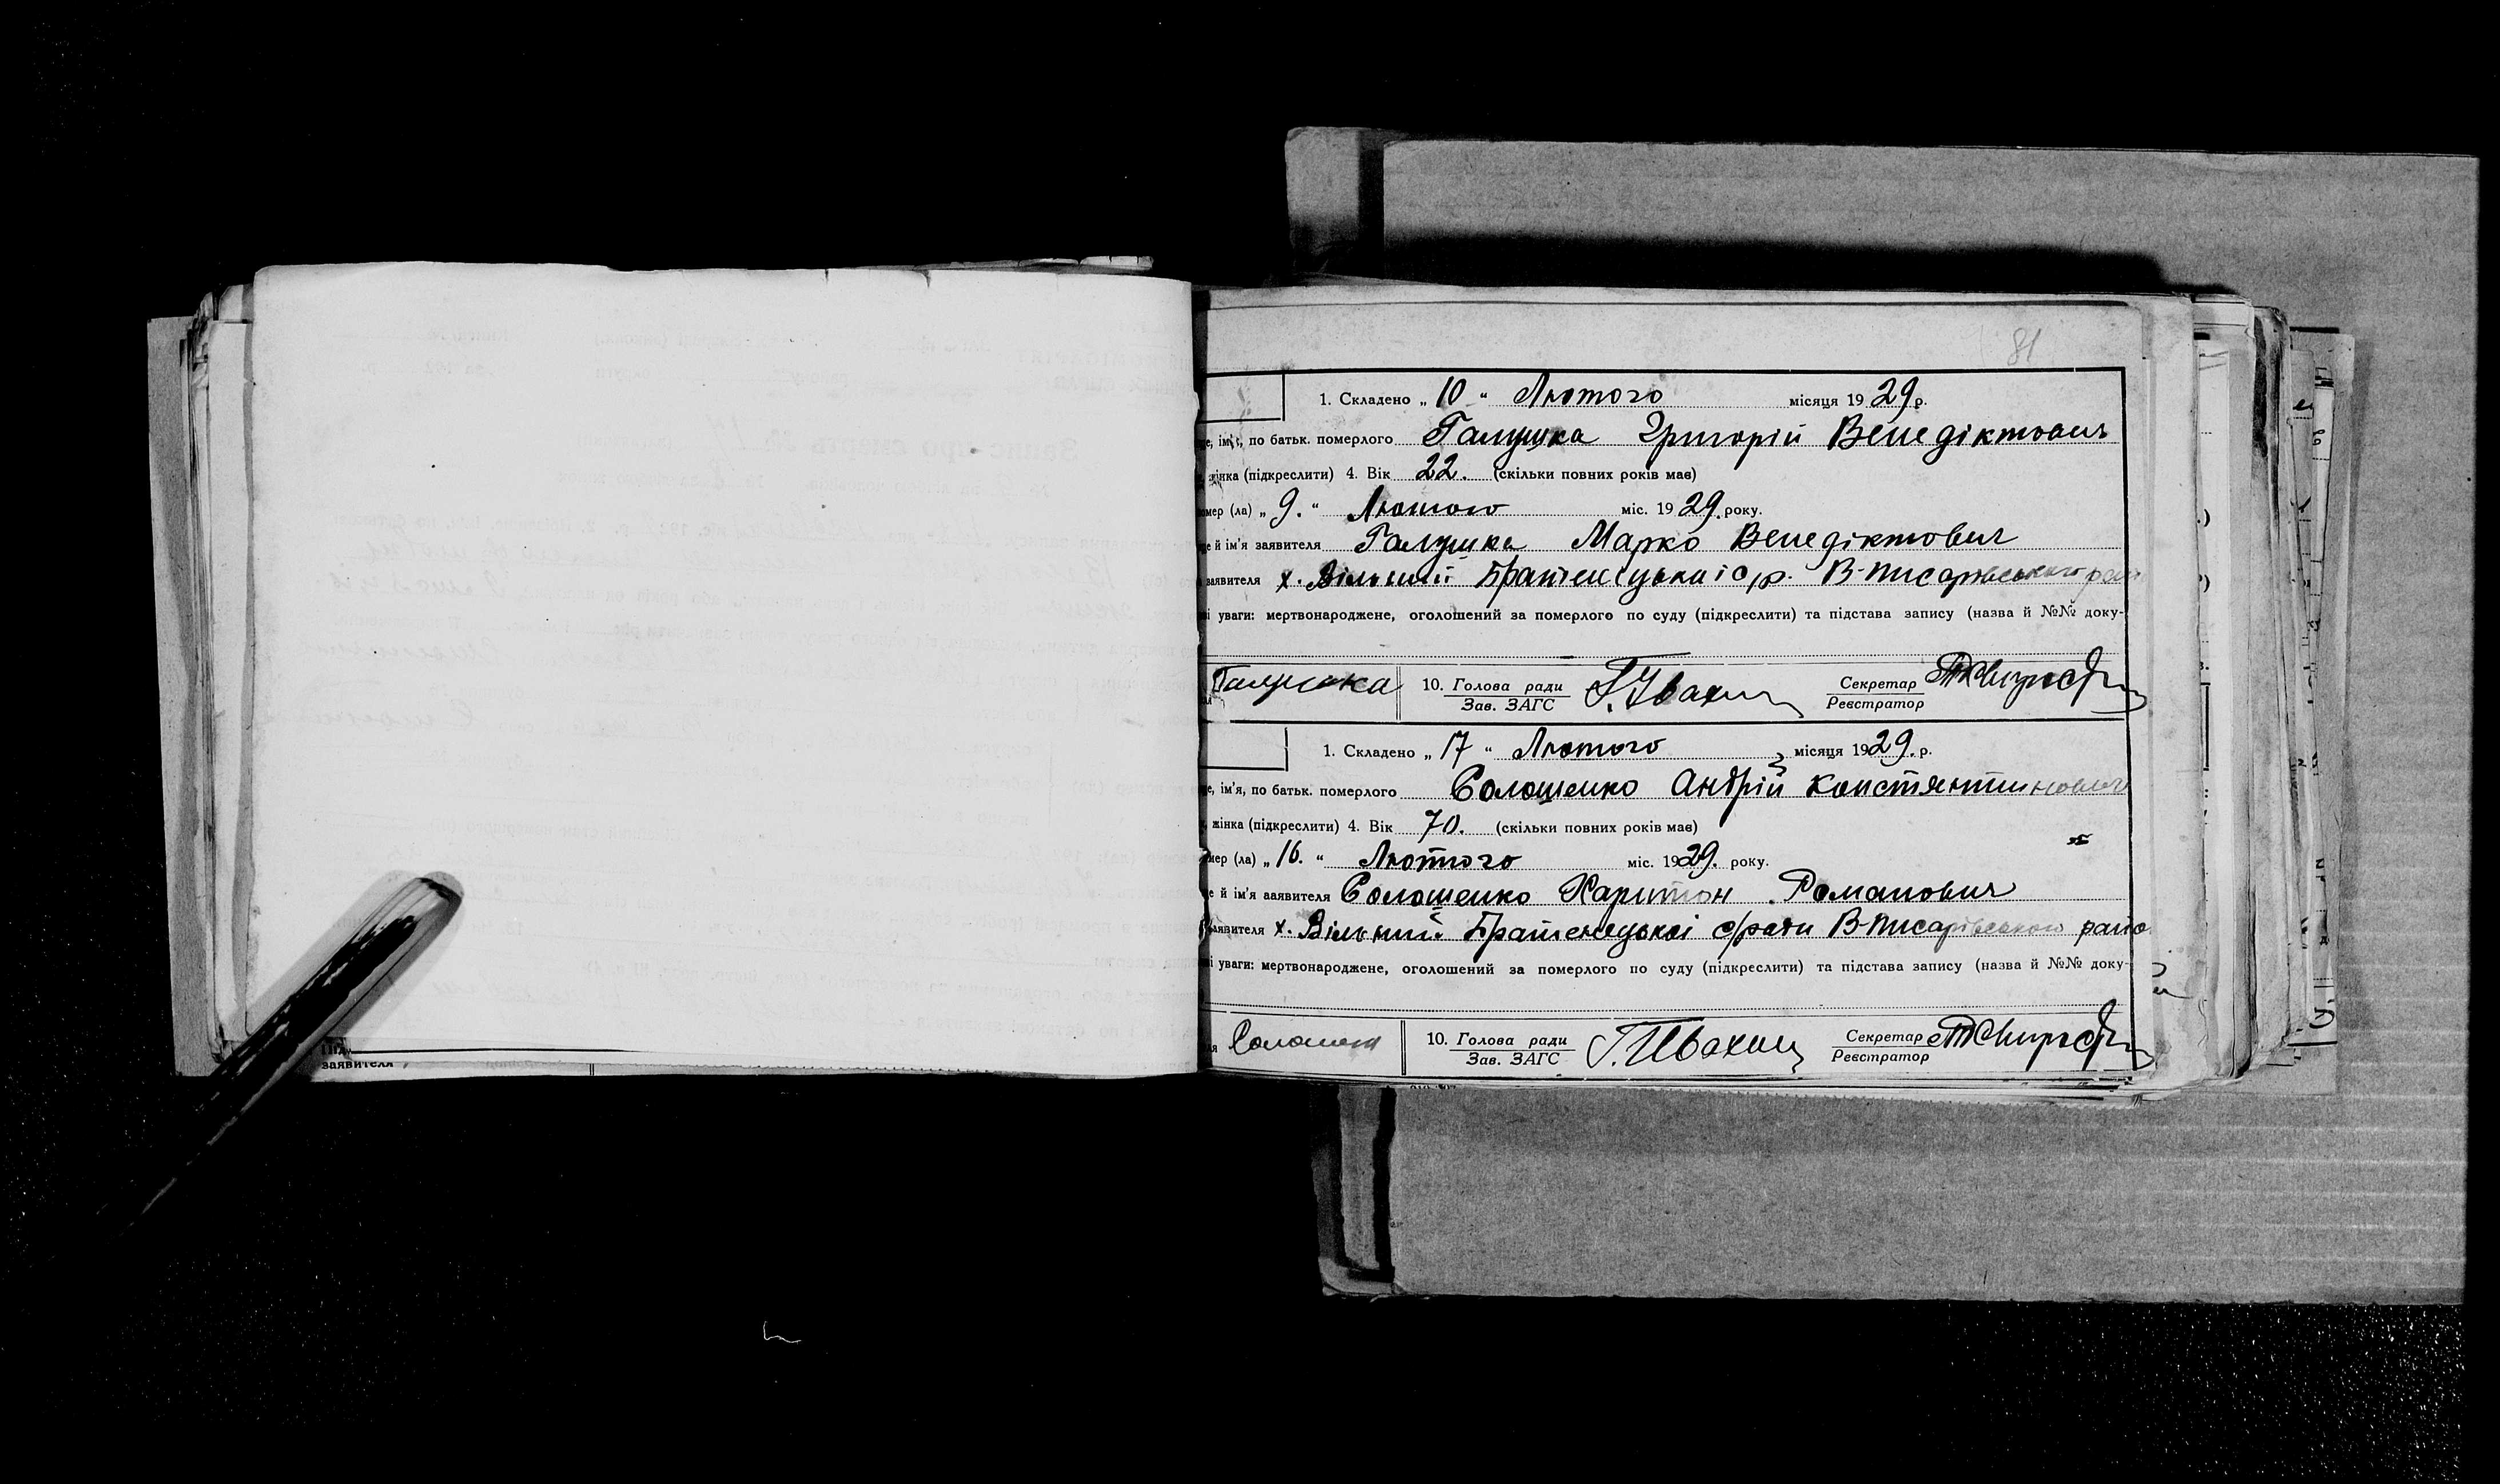 81
1. Складено „ 10 “ Лютого місяця 1929 р.
ім'я, по батьк. померлого Галушка Григорій Венедіктович
жінка (підкреслити) 4. Вік 22. (скільки повних років має)
мер (ла) „ 9. “ Лютого міс. 1929. року.
й ім'я заявителя Галушка Марко Венедіктович
заявителя х. Вільний Братенецької с/р. В-Писарівського рай
уваги: мертвонароджене, оголошений за померлого по суду (підкреслити) та підстава запису (назва й №№ доку-
Галушка 10. Голова ради Секретар
Зав. ЗАГС Реєстратор
1. Складено „ 17 “ Лютого місяця 1929. р.
ім'я, по батьк. померлого Солошенко Андрій Констянтинович
жінка (підкреслити) 4. Вік 70. (скільки повних років має)
мер (ла) „ 16. “ Лютого міс. 1929. року.
й ім'я заявителя Солошенко Харитон Романович
заявителя х. Вільний Братенецької с/ради В-Писарівського райо
уваги: мертвонароджене, оголошений за померлого по суду (підкреслити) та підстава запису (назва й №№ доку-
10. Голова ради Секретар
Зав. ЗАГС Реєстратор
заявителя